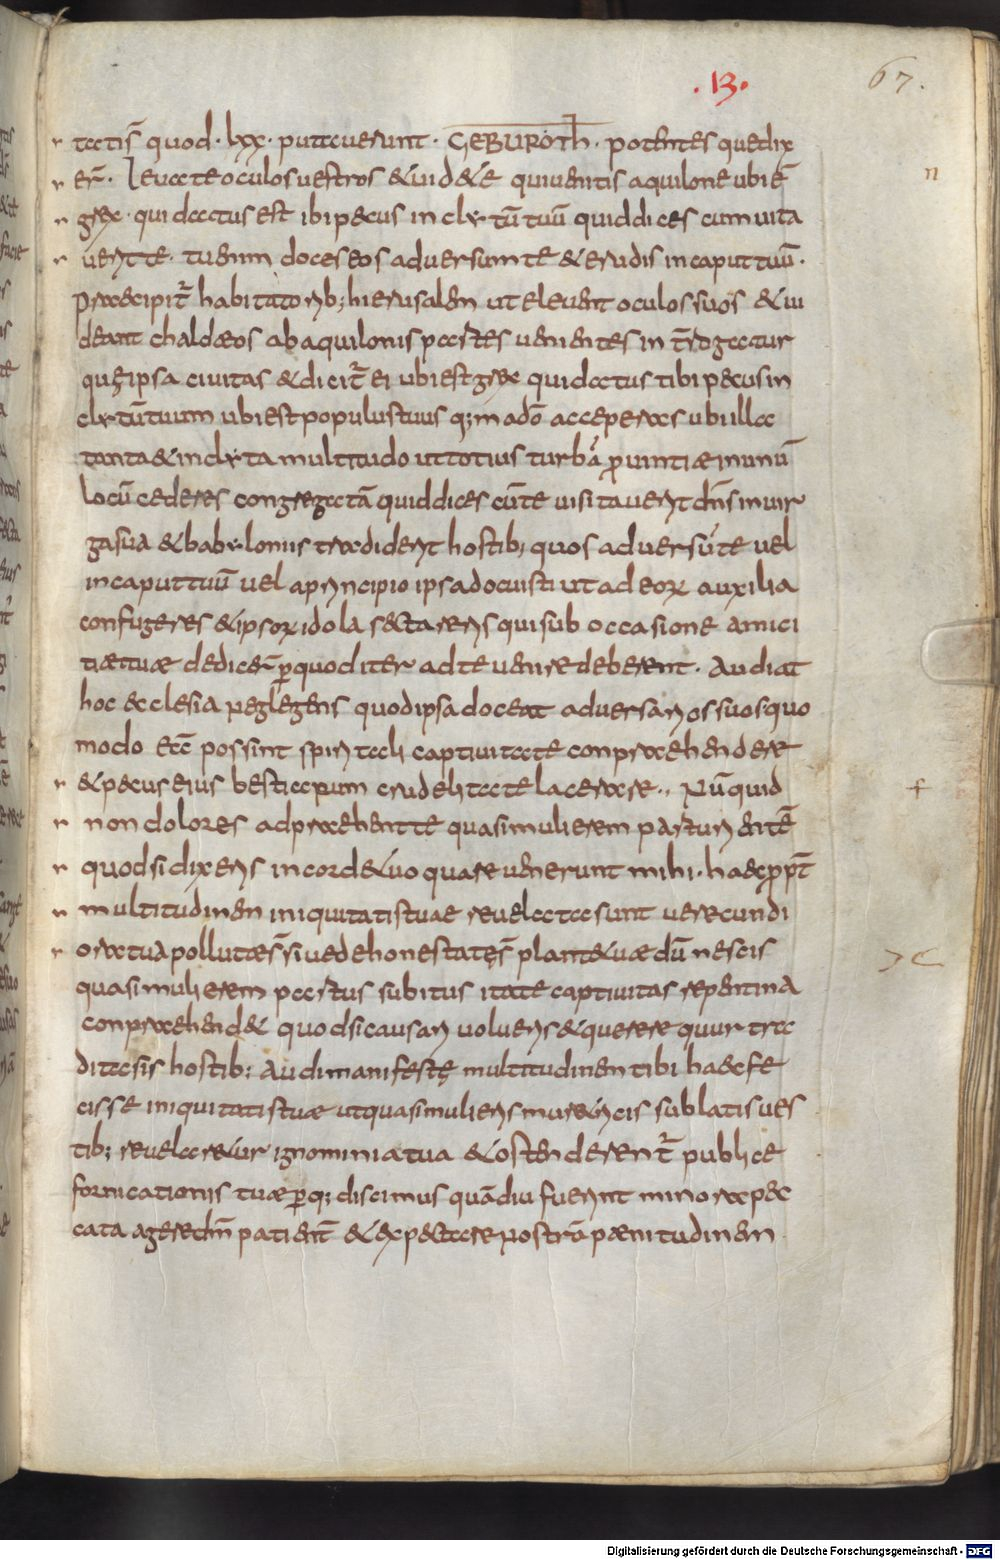 .13. 67.
tatis quod · lxx · putaverunt · GEBUROTH · potentes quedix
er̄ · Levate oculos vestros & vid&e qui venitis aquilone ubi ē
grex · qui datus est ibi pecus inclytū tuū quid dices cum visita
verit te · tu enim doces eos adversum te & erudis in caput tuū ·
Praecipit̄ habitatorib; hierusalem ut elevent oculos suos & vi
deant chaldeos ab aquilonis partes venientes interrogatur
quę ipsa civitas & dicit̄ ei ubi est grex qui datus tibi pecus in
clytū tuum ubi est populus tuus q; in adō acceperas ubi illa
tanta & inclyta multitudo ut totius turbā provintiae in unū
locū cederes congregatā quid dices cū te visitaverit dn̄s in vir
ga sua & babyloniis tradiderit hostib; quos adversū te vel
in caput tuū vel a principio ipsa docuisti ut ad eorum auxilia
confugeres & ipsorum idola sectareris qui sub occasione amici
tiae tuae dedicer̄ per quod iter ad te venire deberent · Audiat
hoc ecclesia neglegens quod ipsa doceat adversarios suos quo
modo eā possint spiritali captivitate conpraehendere
& pecus eius bestiarum crudelitate lacerare ·, Nū quid
non dolores adpraehent te quasi mulierem parturientē
quod si dixeris in corde tuo quare venerunt mihi · haec propt̄
multitudinem iniquitatis tuae revelata sunt verecundi
ora tua pollutae s̄ sive dehonestatę s̄ plantae tuae dū nescis
quasi mulierem partus subitus ita te captivitas repentina
conpraehend& quod si causari volueris & querere quur tra
dita sis hostib; Audi manifestę multitudinem tibi haec fe
cisse iniquitatis tuae ut quasi mulieris meretricis sublatis ves
tib; revelaretur ignominia tua & ostenderent̄ publice
fornicationis tuae per q; discimus quādiu fuerint minora pec
cata agere dn̄m patientē & expectare nostrā paenitudinem
Digitalisierung gefördert durch die Deutsche Forschungsgemeinschaft - DFG